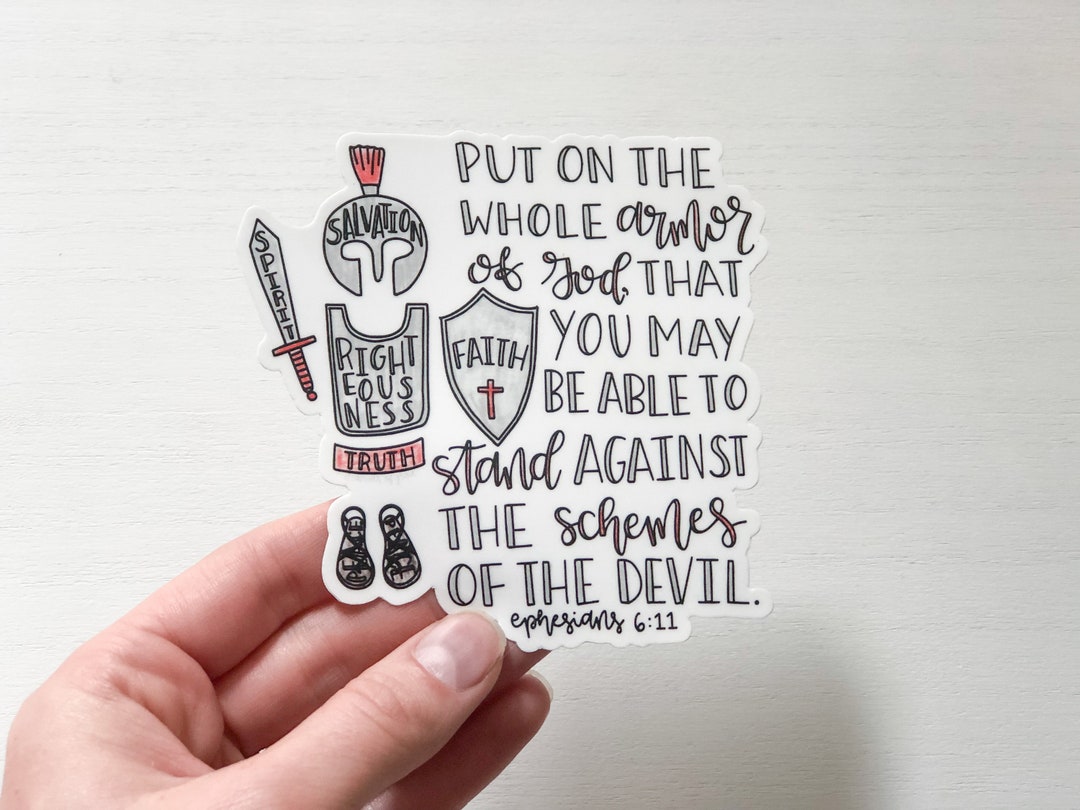 PUT ON THE
WHOLE armor
of God, THAT
YOU MAY
BE ABLE TO
stand AGAINST
THE schemes
OF THE DEVIL.
ephesians 6:11
SALVATION
SPIRIT
RIGHT
EOUS
NESS
FAITH
TRUTH